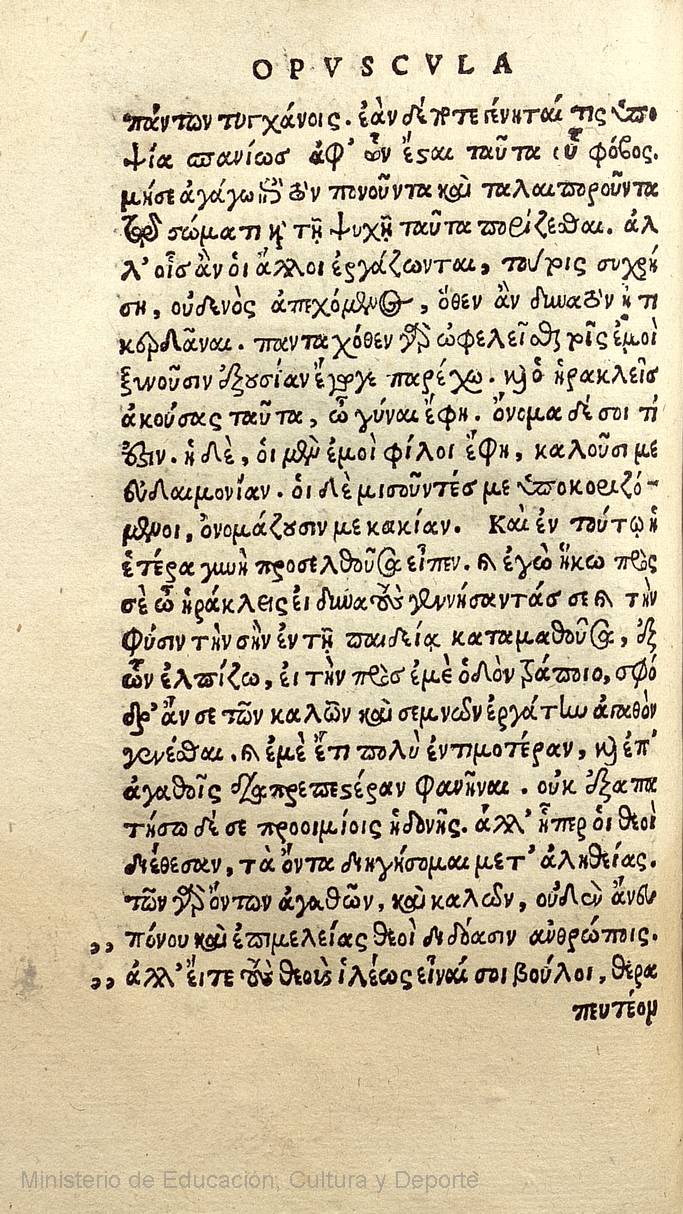 OPVSCVLA
πάντων τυγχάνοις. ἐὰν δέ ποτε γένηταί τις ὑπο
ψία σπανίως ἀφ' ὧν ἔσαι ταῦτα οὐ φόβος.
μήσε ἀγάγω ἐπὶ τὸν πονοῦντα καὶ ταλαιποροῦντα
τῷ σώματι κỳ τῇ ψυχῇ ταῦτα πορίζεσθαι. ἀλ
λ' οἷς ἂν ὁι ἄλλοι ἐργάζωνται, τούτοις συχρή
ση, ουδενὸς ἀπεχόμενος, ὅθεν ἂν δυνατὸν ᾖ τι
κερδᾶναι. πανταχόθεν γὰρ ὠφελεῖσθαι τοῖς ἐμοὶ
ξυνοῦσιν ἐξουσίαν ἔγωγε παρέχω. καὶ ὁ ἡρακλεῖς
ἀκούσας ταῦτα, ὦ γύναι ἔφη. ὄνομα δέ σοι τί
ἐστιν. ἡ δὲ, ὁι μὲν ἐμοὶ φίλοι ἔφη, καλοῦσι με
εὐδαιμονίαν. ὁι δὲ μισοῦντές με ὑποκοριζό-
μενοι, ὀνομάζουσιν με κακίαν. Καὶ ἐν τούτῳ ἡ
ἑτέρα γυνὴ προσελθοῦσα εἶπεν. καὶ ἐγὼ ἥκω πρὸς
σὲ ὦ ἡράκλεις ἐι δυνατοὺς γεννήσαντάς σε καὶ τὴν
φύσιν τὴν σὴν ἐν τῇ παιδείᾳ καταμαθοῦσα, ἐξ
ὧν ἐλπίζω, ἐι τὴν πρὸς ἐμὲ ὁδὸν τράποιο, σφό
δρ' ἄν σε τῶν καλῶν καὶ σεμνῶν ἐργάτην ἀγαθὸν
γενέσθαι. καὶ ἐμὲ ἔτι πολὺ ἐντιμοτέραν, καὶ ἐπ'
ἀγαθοῖς διαπρεπεστέραν φανῆναι. οὐκ ἐξαπα
τήσω δέ σε προοιμίοις ἡδονῆς. ἀλλ' ἧπερ ὁι θεοὶ
διέθεσαν, τὰ ὄντα διηγήσομαι μετ' ἀληθείας.
τῶν γὰρ ὄντων ἀγαθῶν, καὶ καλῶν, οὐδὲν ἄνευ
,, πόνου καὶ ἐπιμελείας θεοὶ διδόασιν ανθρώποις.
,, ἀλλ' ἔιτε τοὺς θεοὺς ἱλέως εἶναί σοι βούλοι, θερα
πευτέον
Ministerio de Educación, Cultura y Deporte